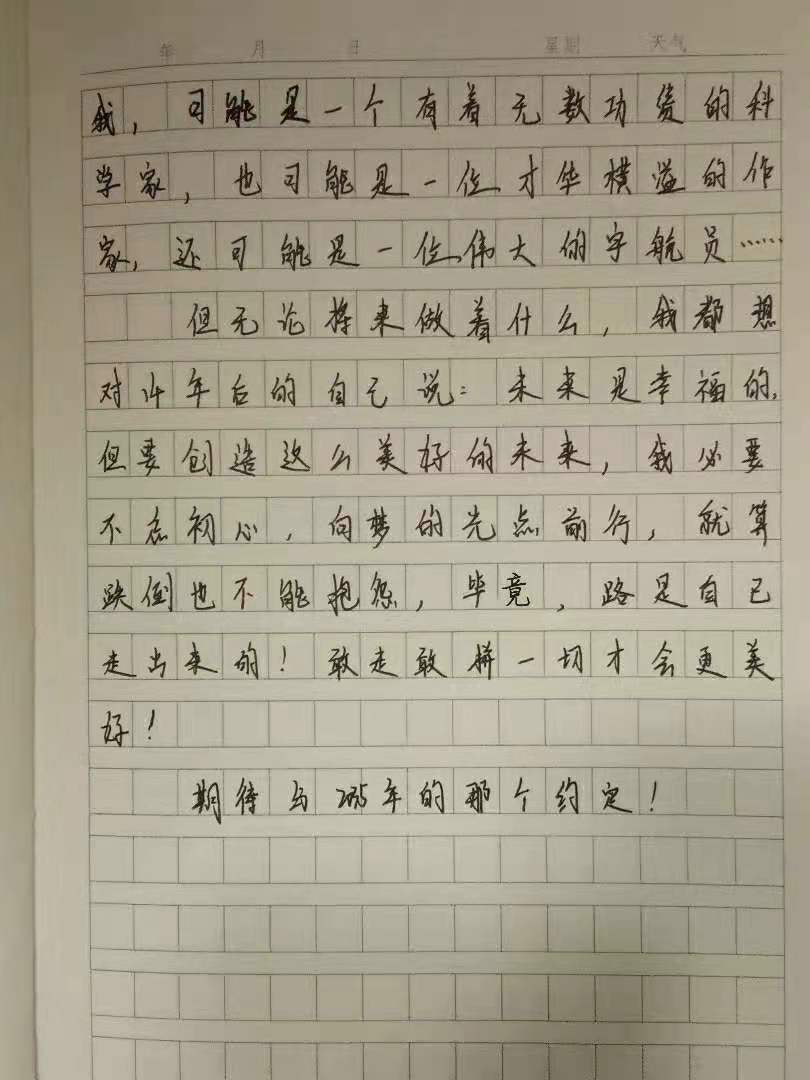 年 月 日 星期 天气
我，可能是一个有着无数功绩的科
学家，也可能是一位才华横溢的作
家，还可能是一位伟大的宇航员……
但无论将来做着什么，我都想
对14年后的自己说：未来是幸福的，
但要创造这么美好的未来，我必要
不忘初心，向梦的光点前行，就算
跌倒也不能抱怨，毕竟，路是自己
走出来的！敢走敢拼一切才会更美
好！
期待与2035年的那个约定！